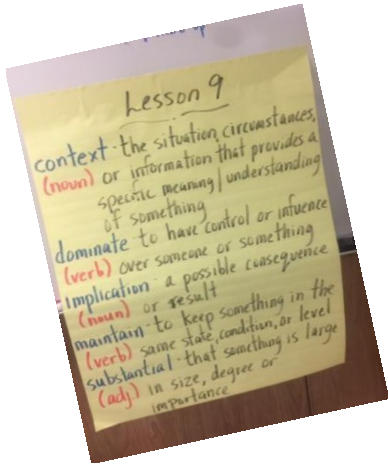 Lesson 9
context - the situation, circumstances,
(noun) or information that provides a
specific meaning/understanding
of something
dominate to have control or infuence
(verb) over someone or something
Implication - a possible consequence
(noun) or result
maintain - to keep something in the
(verb) same state, condition, or level
substantial - that something is large
(adj) in size, degree or
importance